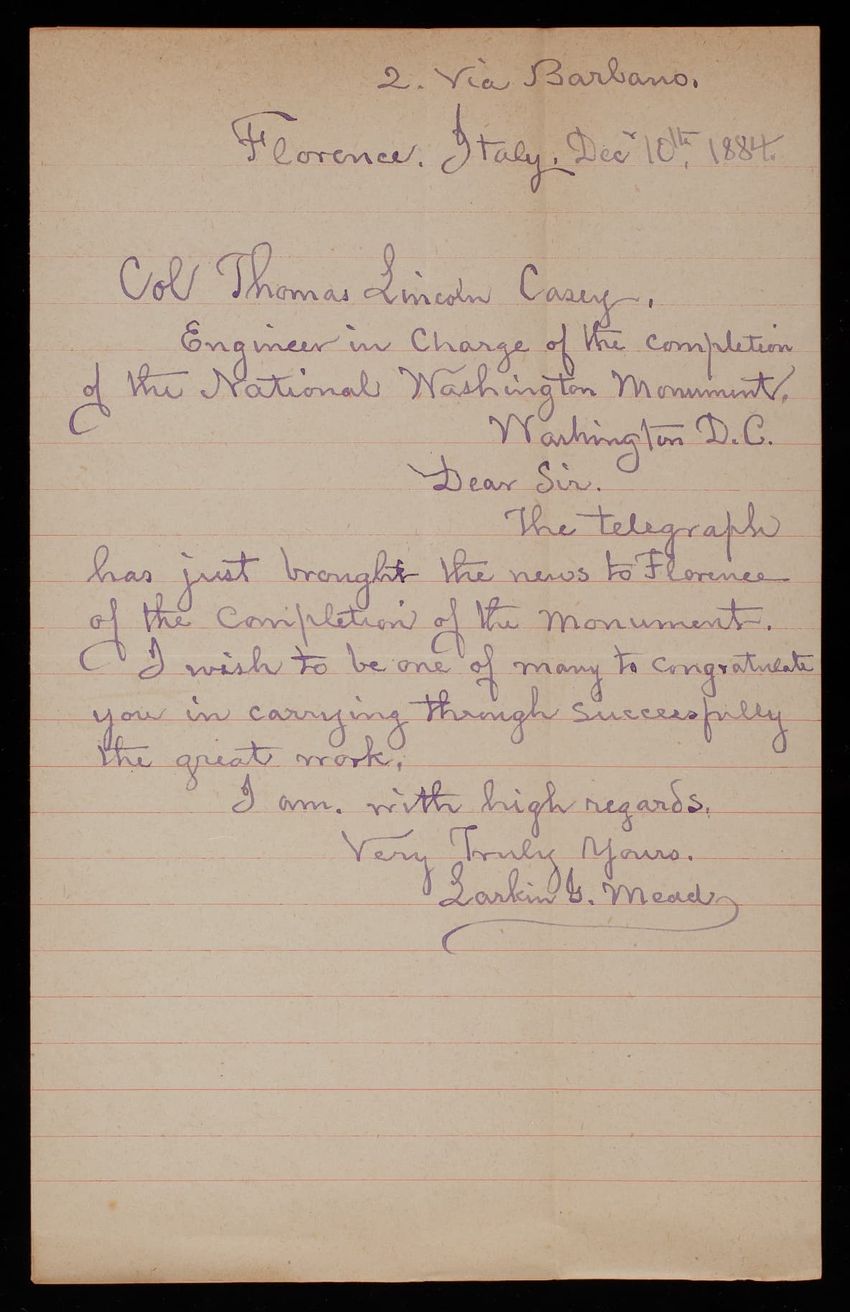 2. Via Barbano.
Florence. Italy. Decr 10th, 1884.
Col Thomas Lincoln Casey.
Engineer in Charge of the completion
of the National Washington Monument.
Washington D.C.
Dear Sir.
The telegraph
has just brought the news to Florence
of the completion of the monument.
I wish to be one of many to congratulate
you in carrying through successfully
the great work.
I am. with high regards.
Very Truly Yours.
Larkin G. Mead